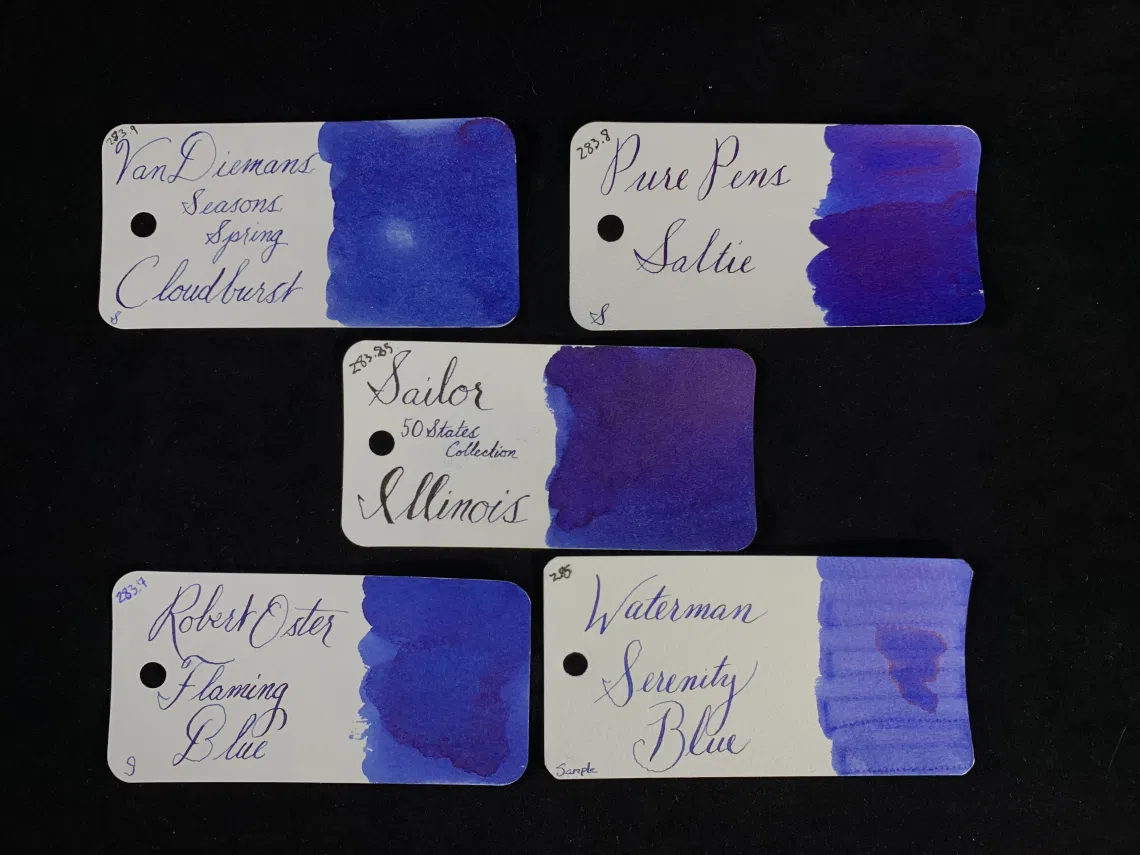 283.9
Van Diemans
Seasons
Spring
Cloudburst
S
283.8
Pure Pens
Saltie
S
283.85
Sailor
50 States
Collection
Illinois
283.7
Robert Oster
Flaming
Blue
S
285
Waterman
Serenity
Blue
Sample